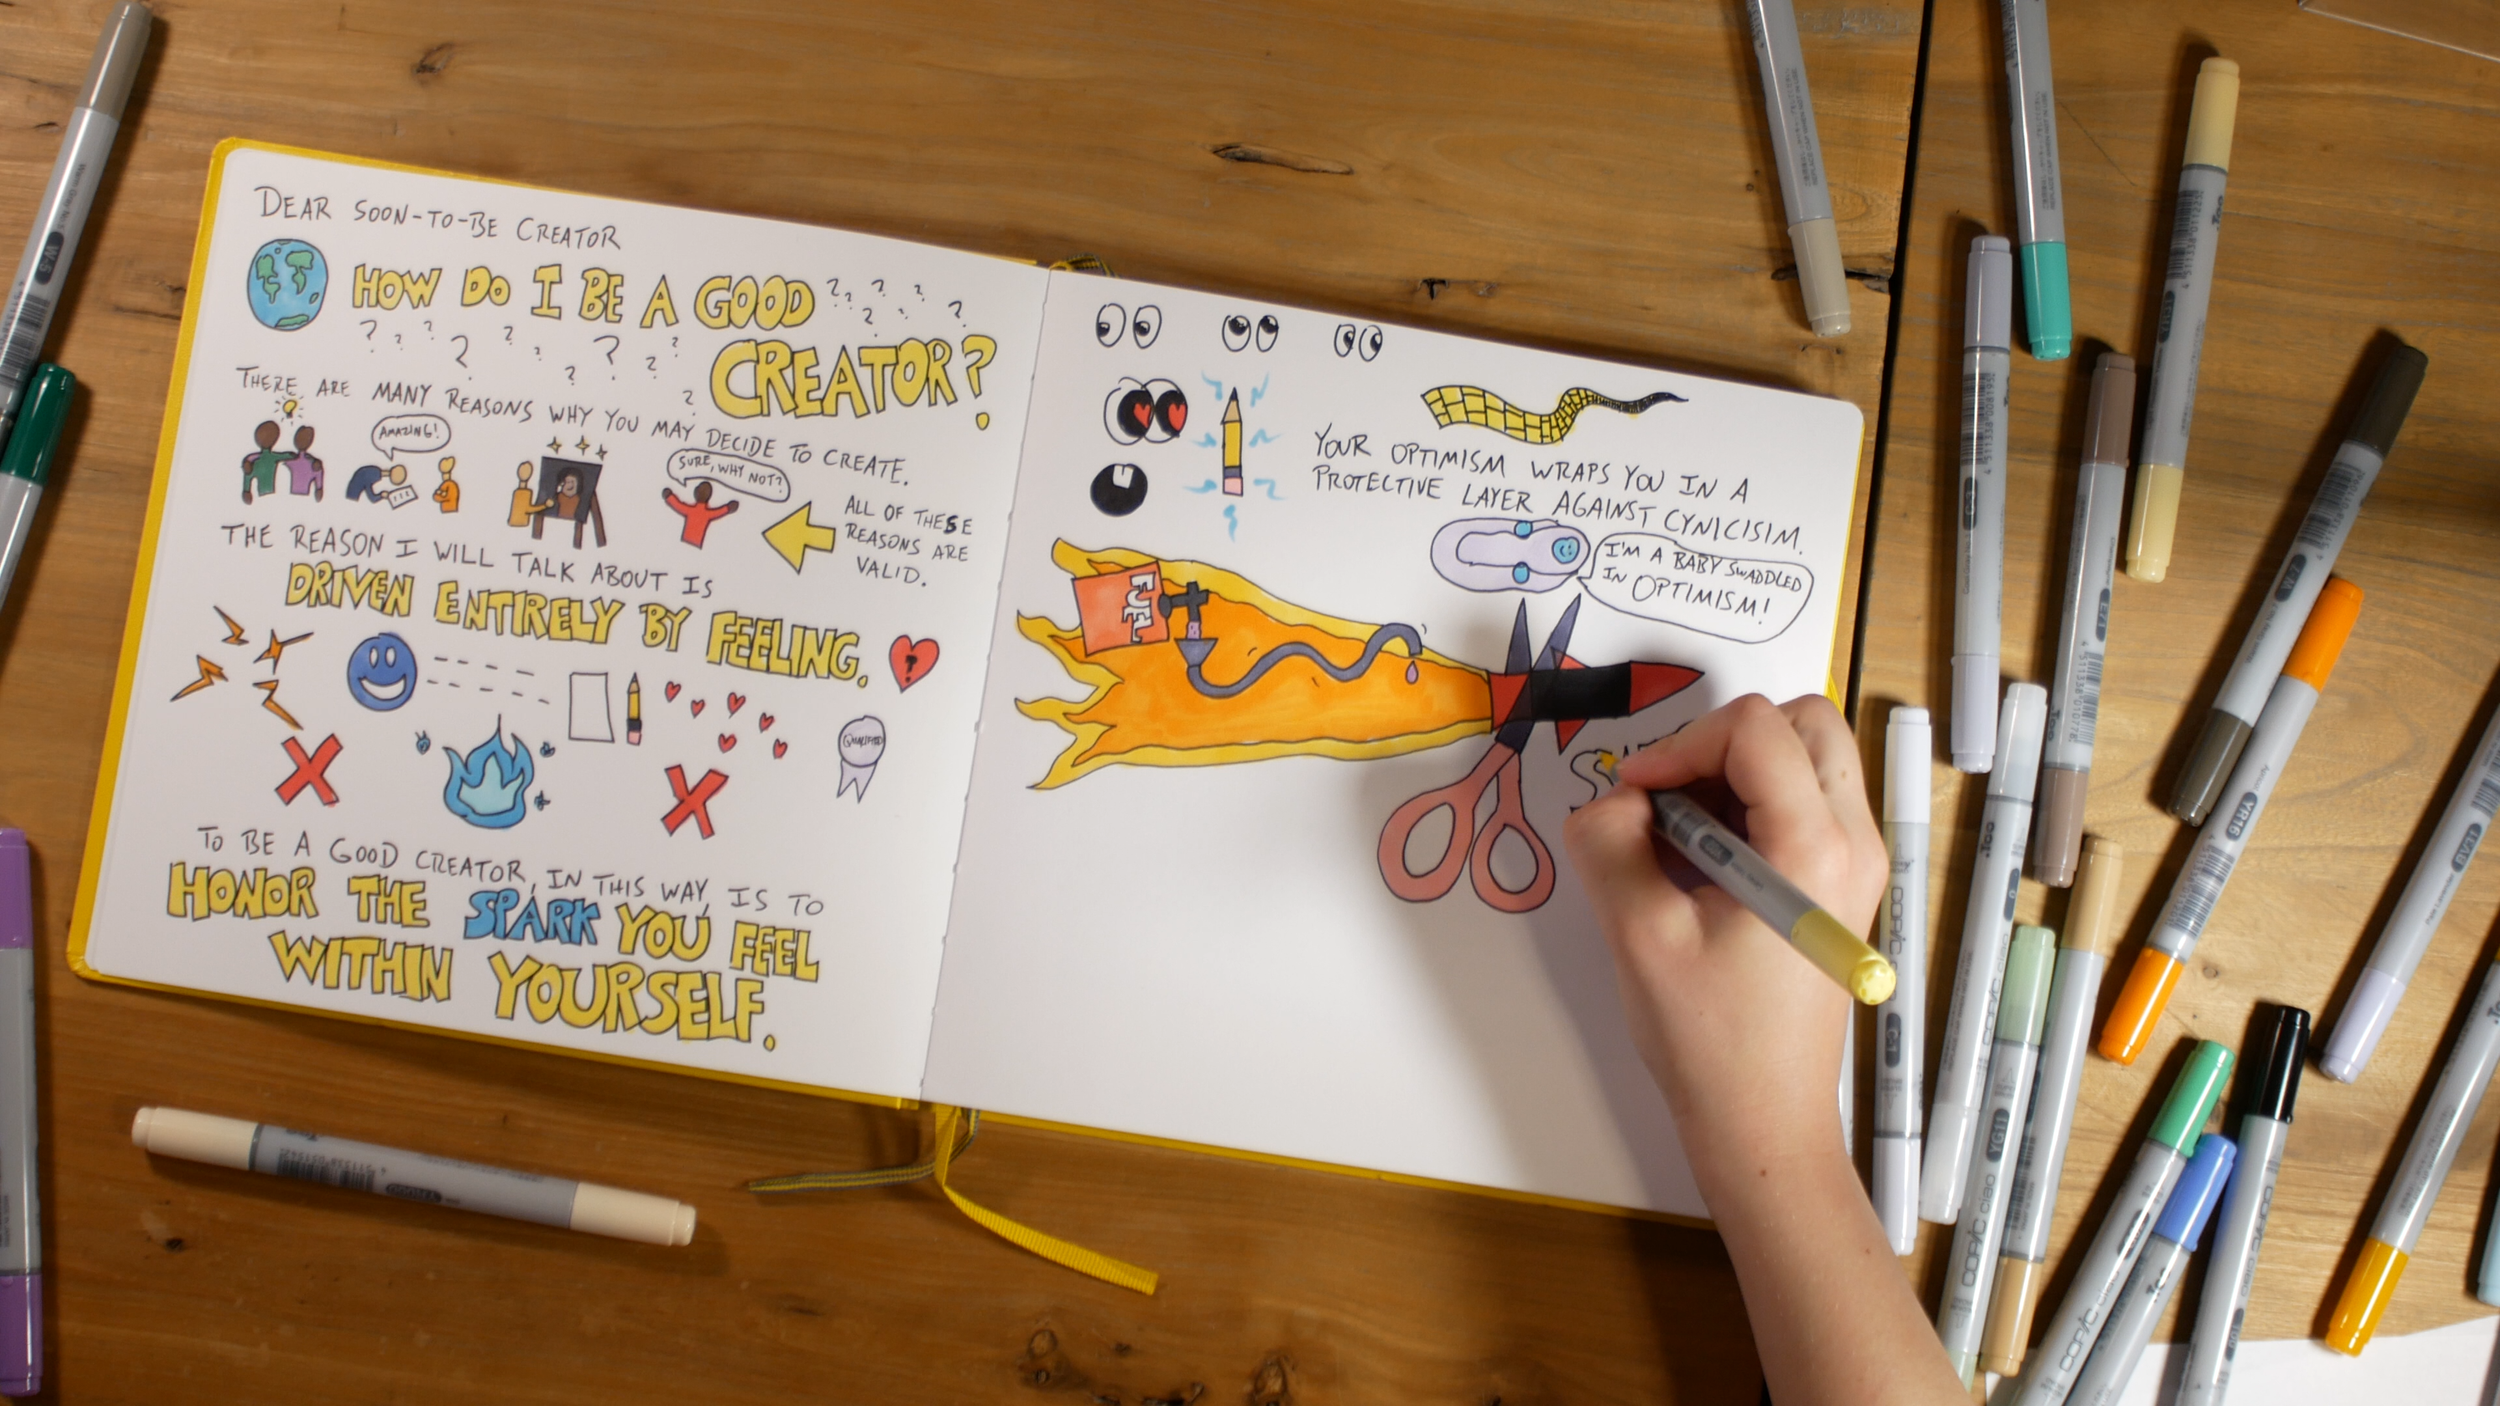 DEAR SOON-TO-BE CREATOR
HOW DO I BE A GOOD
CREATOR?
THERE ARE MANY REASONS WHY YOU MAY DECIDE TO CREATE.
AMAZING!
SURE, WHY NOT?
ALL OF THESE
REASONS ARE
VALID.
THE REASON I WILL TALK ABOUT IS
DRIVEN ENTIRELY BY FEELING.
?
QUALIFIED
TO BE A GOOD CREATOR, IN THIS WAY, IS TO
HONOR THE SPARK YOU FEEL
WITHIN YOURSELF.
YOUR OPTIMISM WRAPS YOU IN A
PROTECTIVE LAYER AGAINST CYNICISIM.
I'M A BABY SWADDLED
IN OPTIMISM!
FUEL
W-5
YR16
BV31
YG11
E71
COPIC
COPIC ciao
COPIC